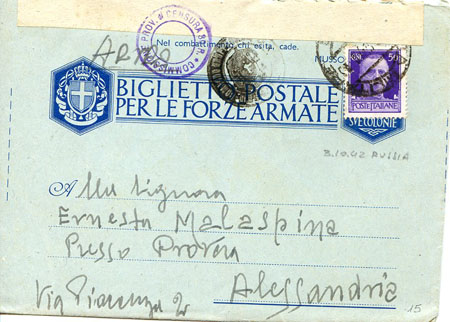 COMMISSIONE PROV. di CENSURA
Nel combattimento chi esita, cade.
MUSSO
CENT. 50
POSTE ITALIANE
BIGLIETTO POSTALE
PER LE FORZE ARMATE
3.10.42 RUSSIA
Alla Signora
Ernesta Malaspina
Presso Provera
Via Piacenza 2
Alessandria
15